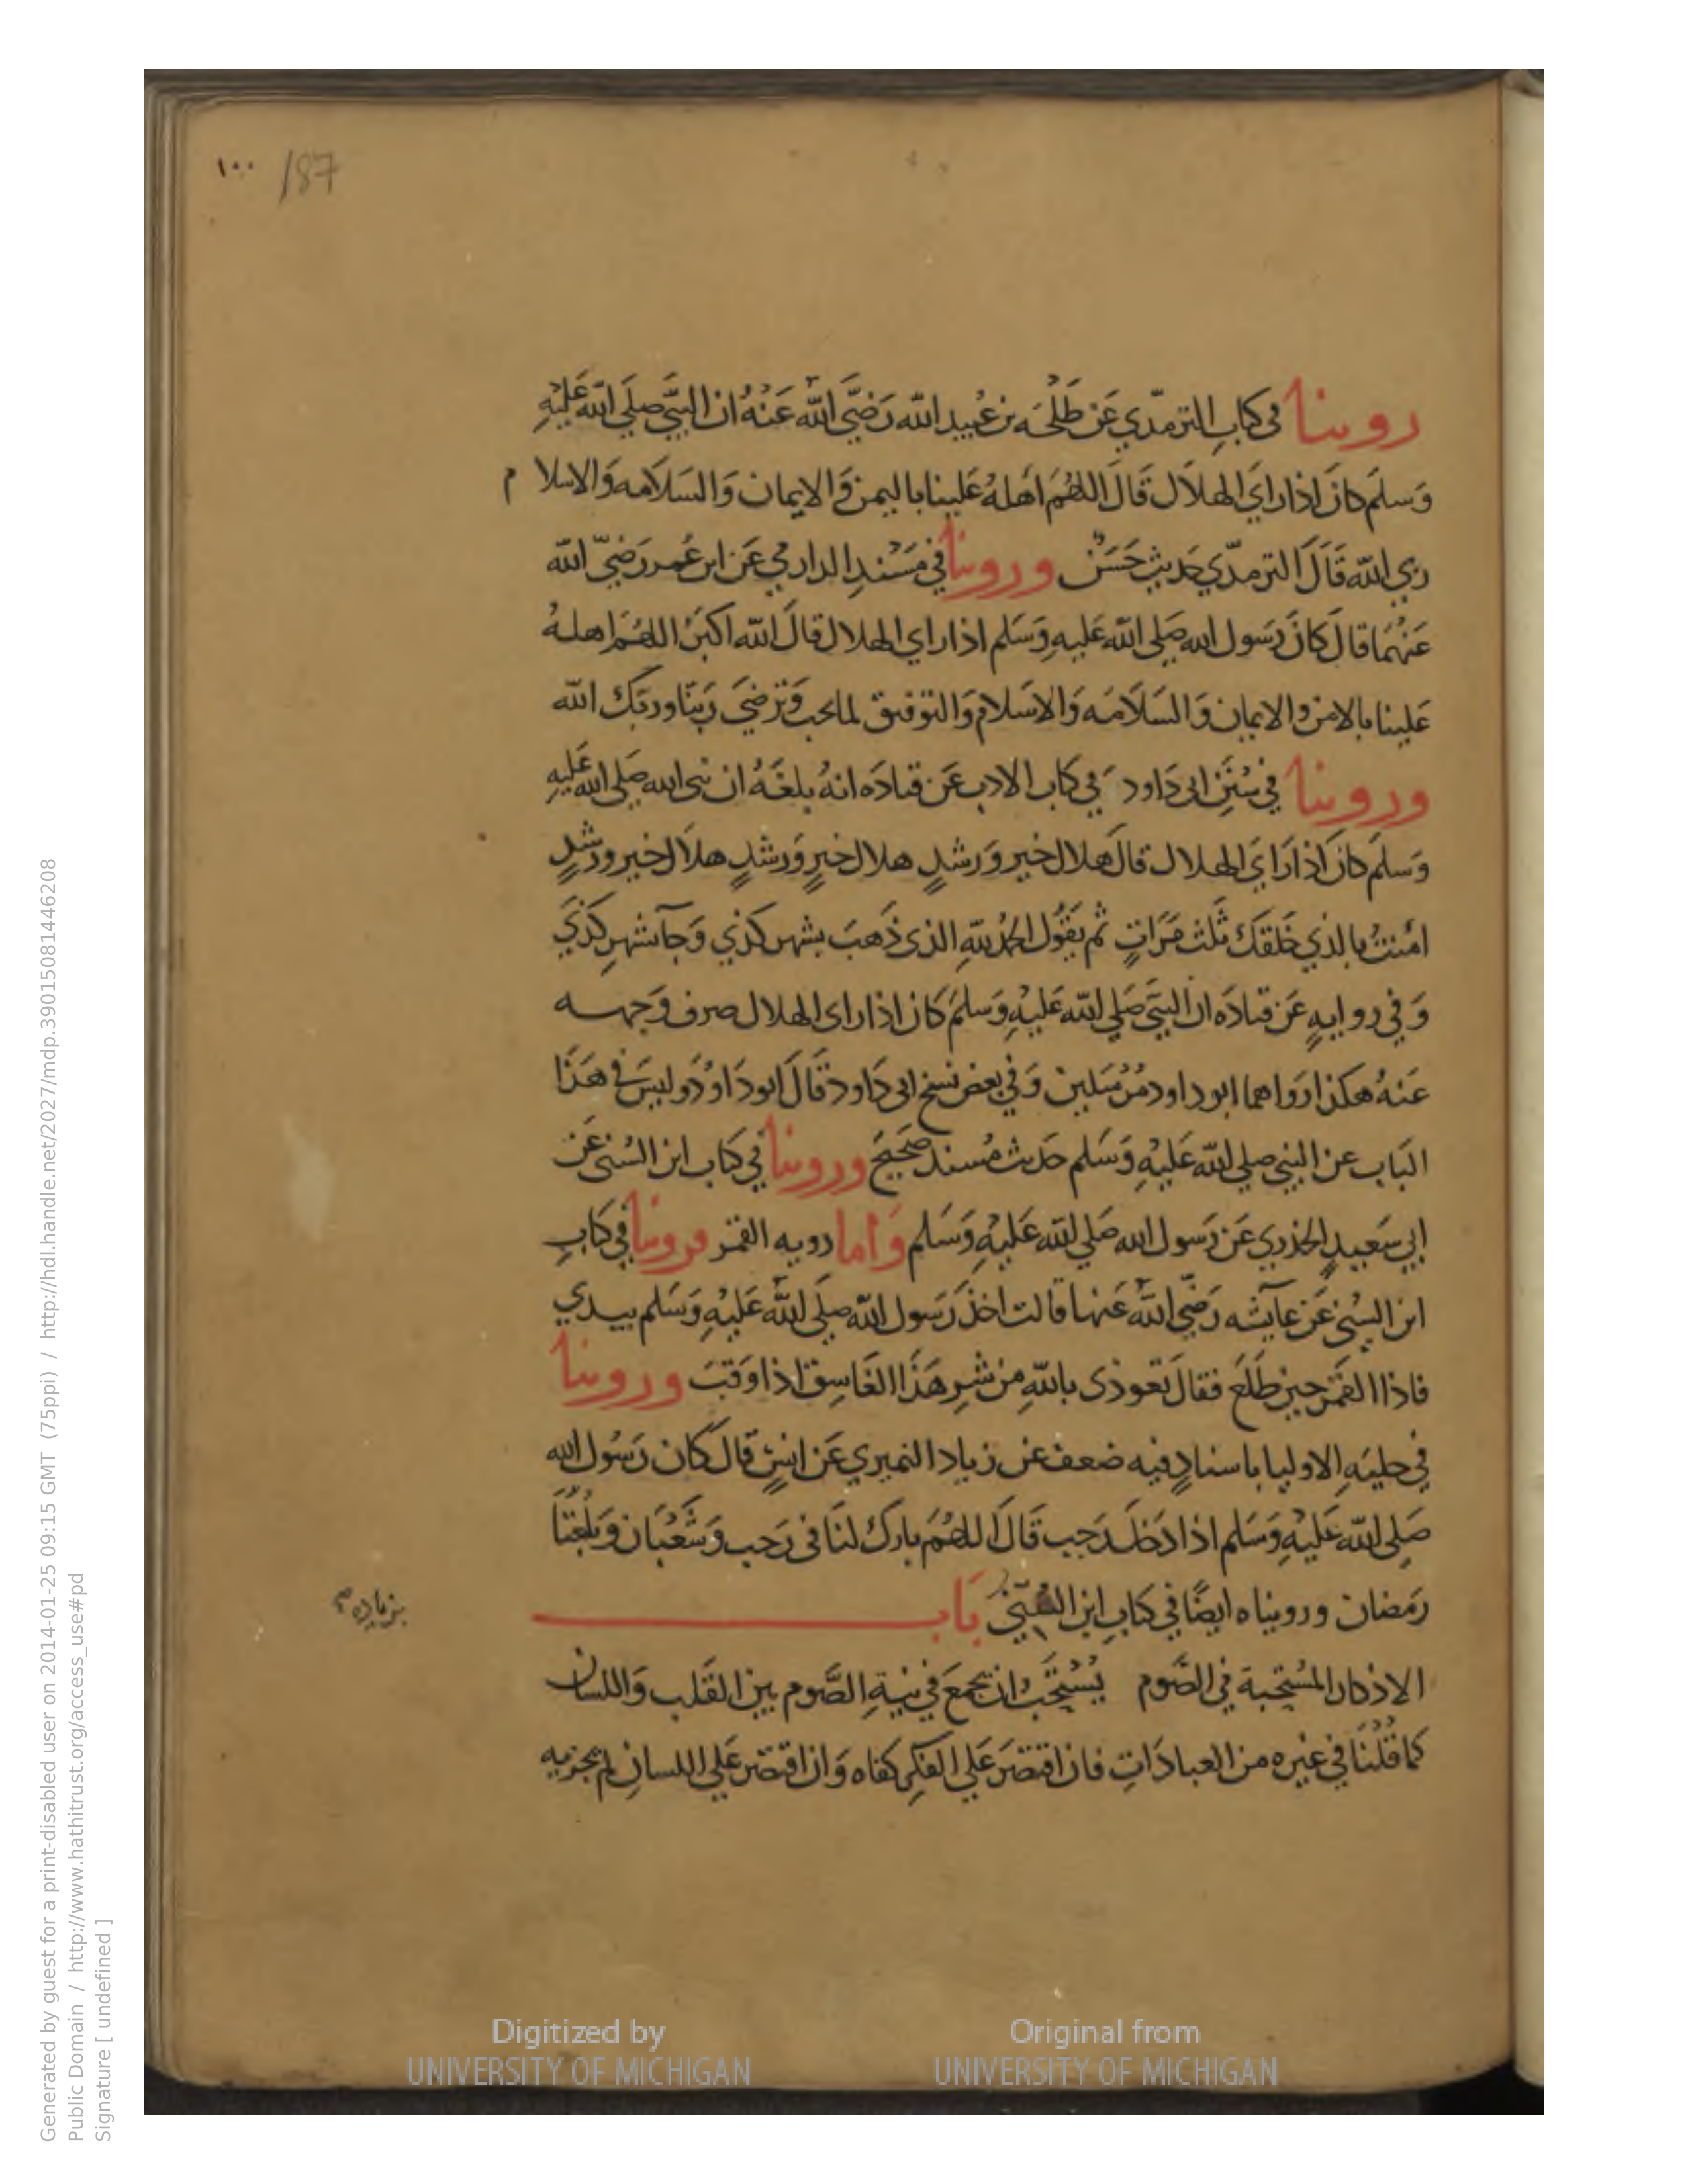 ١٠٠ /87
روينا في كتاب الترمذي عن طلحة بن عُبيد الله رَضيَ الله عَنْهُ ان النبيَّ صلي الله عَليْهِ
وَسلمَ كانَ اذا راي الهلاَل قَالَ اللهُمَ اَهلهُ عَلينا باليمن وَالايمان وَالسَلاَمه وَالاسلام
ربي الله قَالَ الترمذي حَديث حَسَن وروينا في مسْندِ الدارمي عَن ابن عُمر رَضيَ الله
عَنهُمَا قال كانَ رَسول الله صَلى الله عَليهِ وَسَلم اذا راي الهلال قال الله اكبَرُ اللهُمَ اهلهُ
عَلينا بالامن والايمان وَالسَلاَمَه وَالاسَلام وَالتوفيق لما تحب وَترضيَ رَبنَا وربَك الله
وروينا في سُنَنِ ابي دَاود في كتاب الادب عَن قتادَه انهُ بلغَهُ ان نبي الله صَلى الله عَليهِ
وَسلمَ كانَ اذا رَايَ الهلال قالَ هلال خيرٍ وَرشدٍ هلال خيرٍ وَرشدٍ هلاَل خيرٍ ورشدٍ
امَنتُ بالذي خَلقكَ ثَلث مَرَاتٍ ثم يقوُل الحمُد للهِ الذي ذَهبَ بشهر كذي وَجآ بشهرِ كذَي
وَفي روايهٍ عَن قتادَه ان النبَيَ صَلي الله عَليْهِ وَسلمَ كان اذا راى الهلال صرف وَجهه
عَنهُ هكذا روَاهما ابو داود مُرْسَلين وَفي بعض نسخ ابى دَاود قَالَ ابو دَاوُد وليسَ في هَذَا
البَاب عن النبي صلي الله عَليْهِ وَسَلم حَديث مُسند صَحيح وروينا في كتاب ابن السُني عَن
ابي سَعيدٍ الخدري عَن رَسول الله صَلي الله عَليْهِ وَسَلم وَاما رويه القمَر فروينا في كتابِ
ابن السُني عَن عآيشه رَضي الله عَنها قالت اخذ رَسول الله صلَي الله عَليْهِ وَسَلم بيدي
فاذا القمَر حين طَلَع فقالَ تعوذى بالله مِن شر هَذَا الغَاسِق اذا وَقبَ وروينا
في حليَه الاوليا باسنادٍ فيه ضعف عَن زياد النميري عَن انسٍ قالَ كان رَسُول الله
صَلى الله عَليْهِ وَسَلم اذا دَخلَ رَجب قَالَ اللهُمَ بارك لنَا في رَجب وَشَعْبَان وَبلغْنَا
رَمَضان وروينا ه ايضًا في كتابِ ابن السُنيّ بَاب
الاذكار المُستحبة في الصَّوم يُسْتحَبُ ان يجمعَ في نيةِ الصَّوم بين القَلب وَاللسان
كما قُلْنَا في غيره من العبادَاتِ فان اقتصَرَ عَلي الفكرِ كفاه وَان اقتصَر عَلي اللسانِ لم يجزيه
Digitized by
UNIVERSITY OF MICHIGAN
Original from
UNIVERSITY OF MICHIGAN
Generated by guest for a print-disabled user on 2014-01-25 09:15 GMT (75ppi) / http://hdl.handle.net/2027/mdp.39015081446208
Public Domain / http://www.hathitrust.org/access_use#pd
Signature [ undefined ]